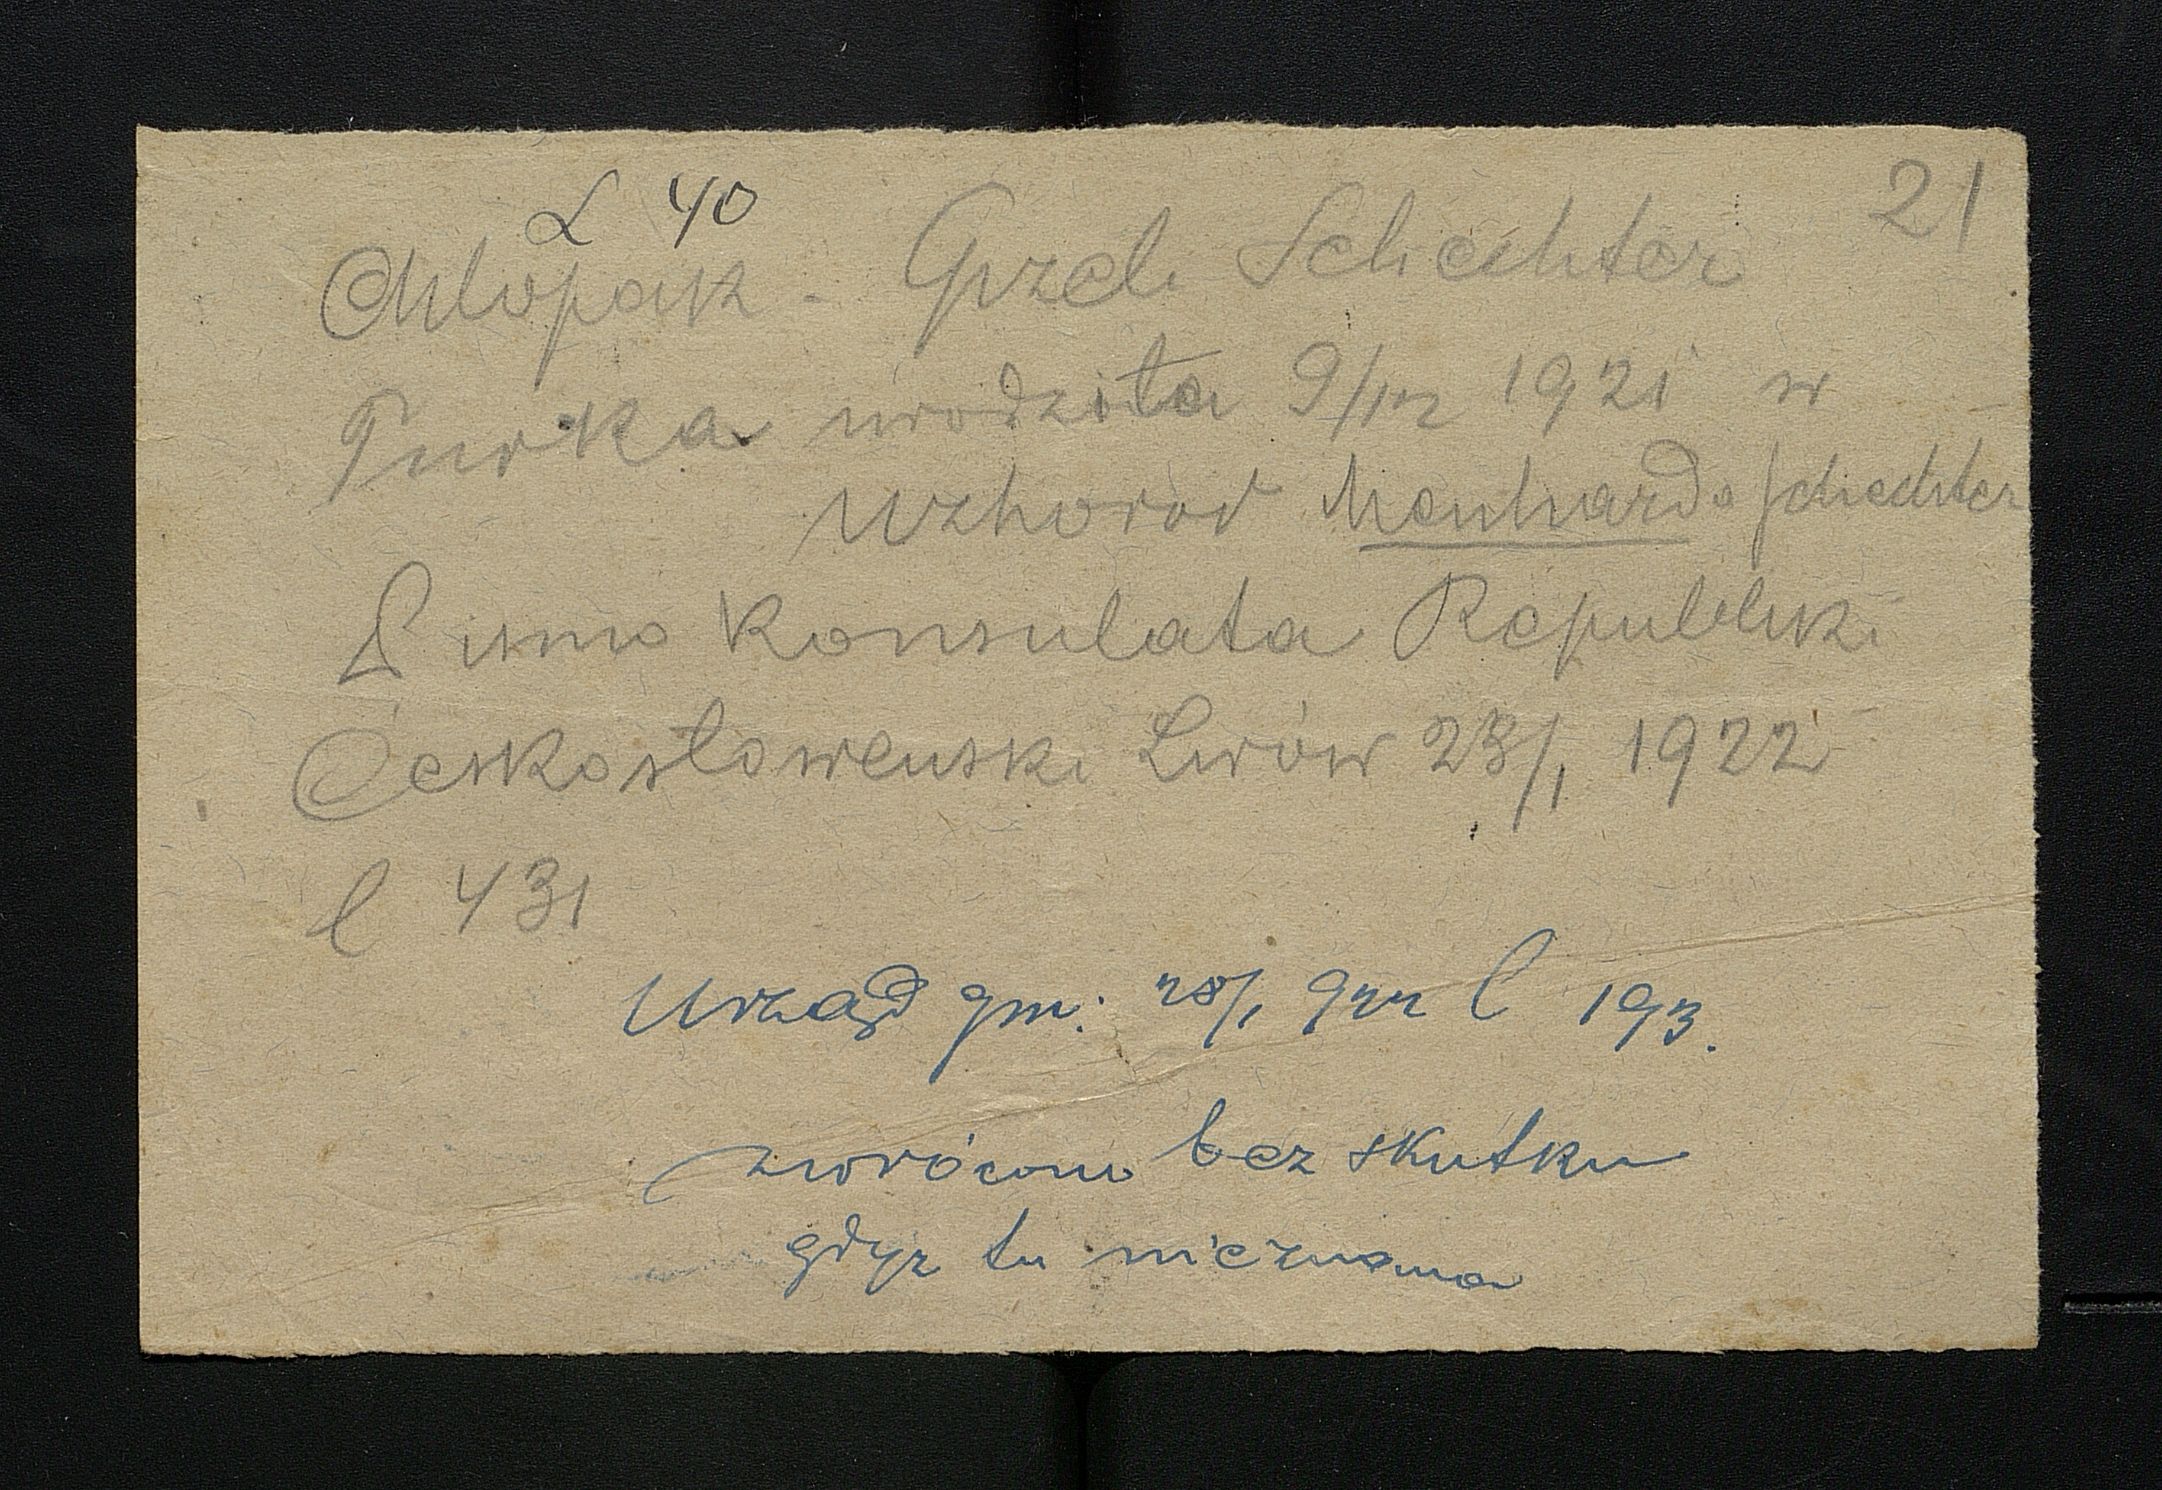 L 40
21
Chłopak - Gizela Schechter
Turka urodziła 9/III 1921 w
Uzhorod Menharda Schechter
Pismo Konsulata Republiki
Ceskosłowenski Lwów 23/1 1922
l 431
Urząd gm: 28/1 922 l 193.
zwrócono bez skutku
gdyz tu nieznana